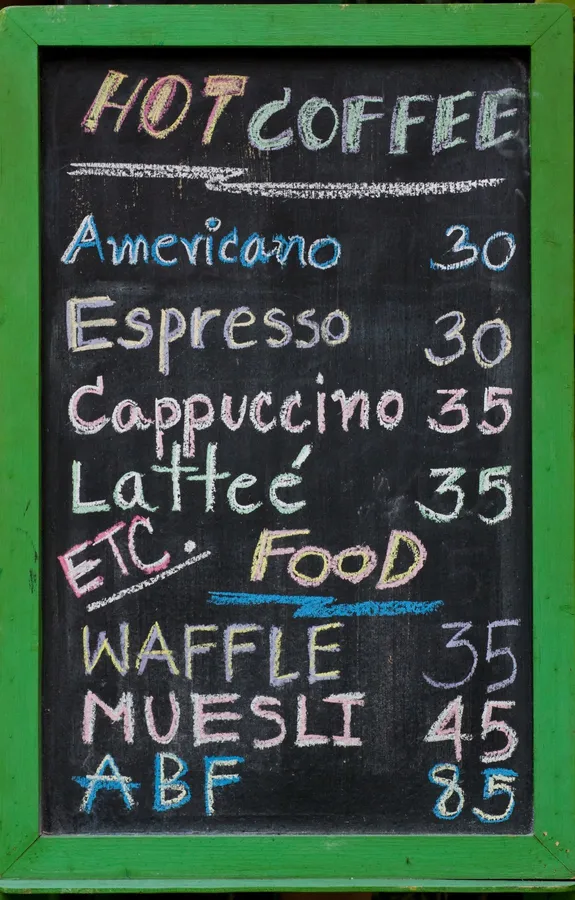 HOT COFFEE
Americano 30
Espresso 30
Cappuccino 35
Latteé 35
ETC. FOOD
WAFFLE 35
MUESLI 45
ABF 85